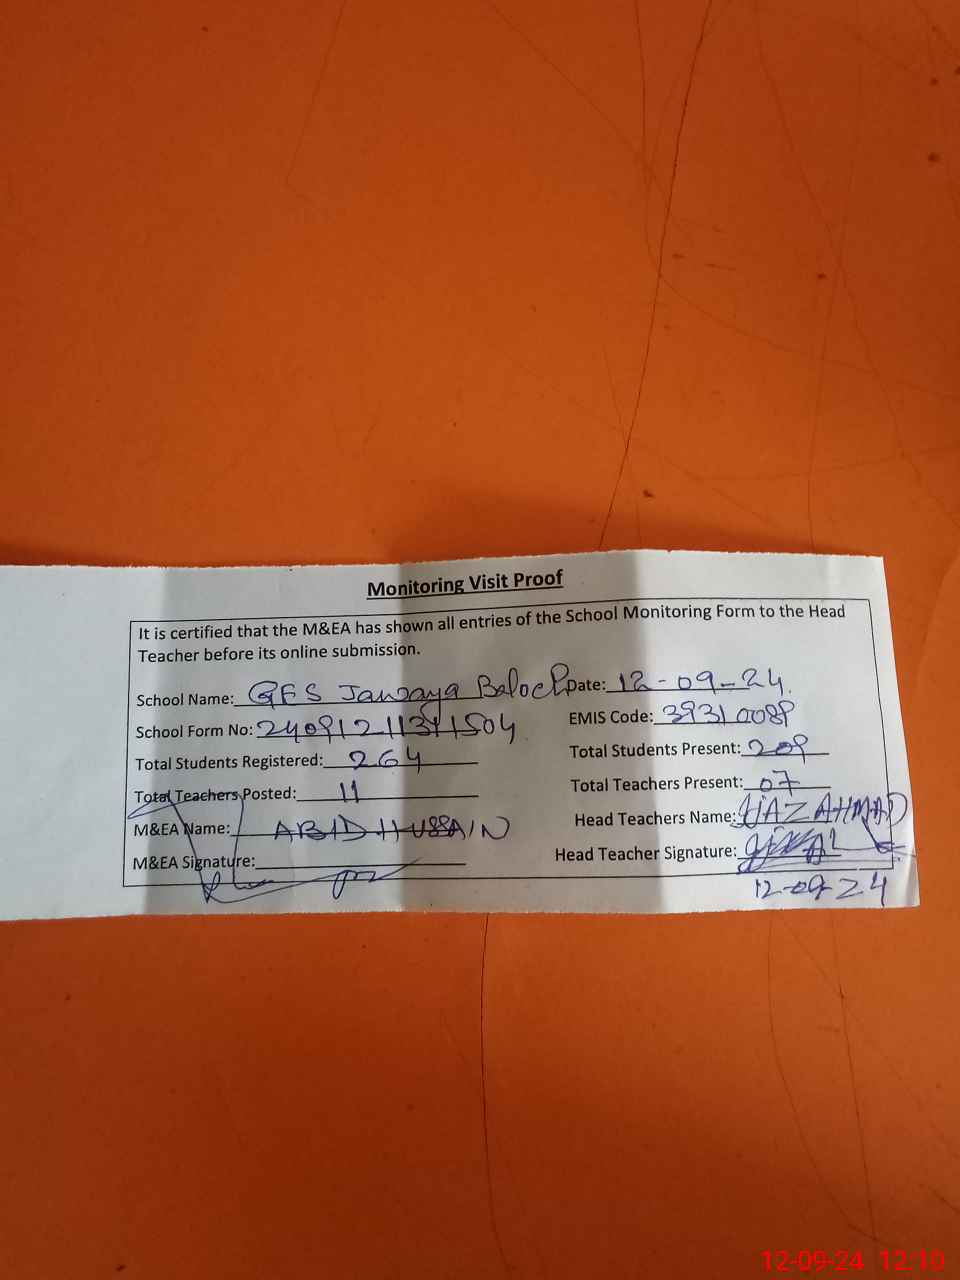 Monitoring Visit Proof
It is certified that the M&EA has shown all entries of the School Monitoring Form to the Head
Teacher before its online submission.
School Name: GES Jawaya Baloch Date: 12-09-24.
School Form No: EMIS Code: 39310089
Total Students Registered: 264 Total Students Present: 209
Total Teachers Posted: 11 Total Teachers Present: 07
M&EA Name: ABID HUSSAIN Head Teachers Name: IJAZ AHMAD
M&EA Signature: Head Teacher Signature:
12-09-24
12-09-24 12:10